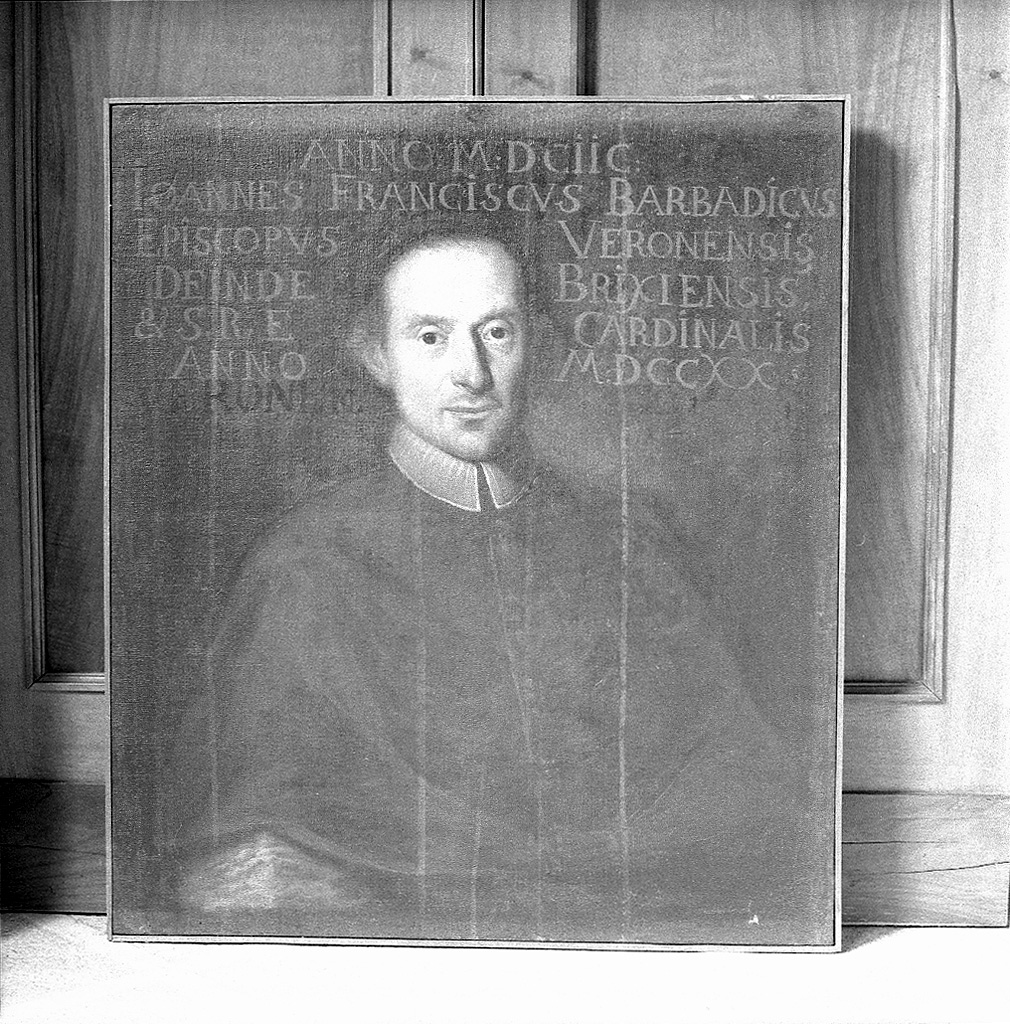 ANNO M·DCIIC
IOANNES FRANCISCVS BARBADICVS
EPISCOPVS VERONENSIS
DEINDE BRIXIENSIS,
& S. R. E CARDINALIS
ANNO M·DCCXX·